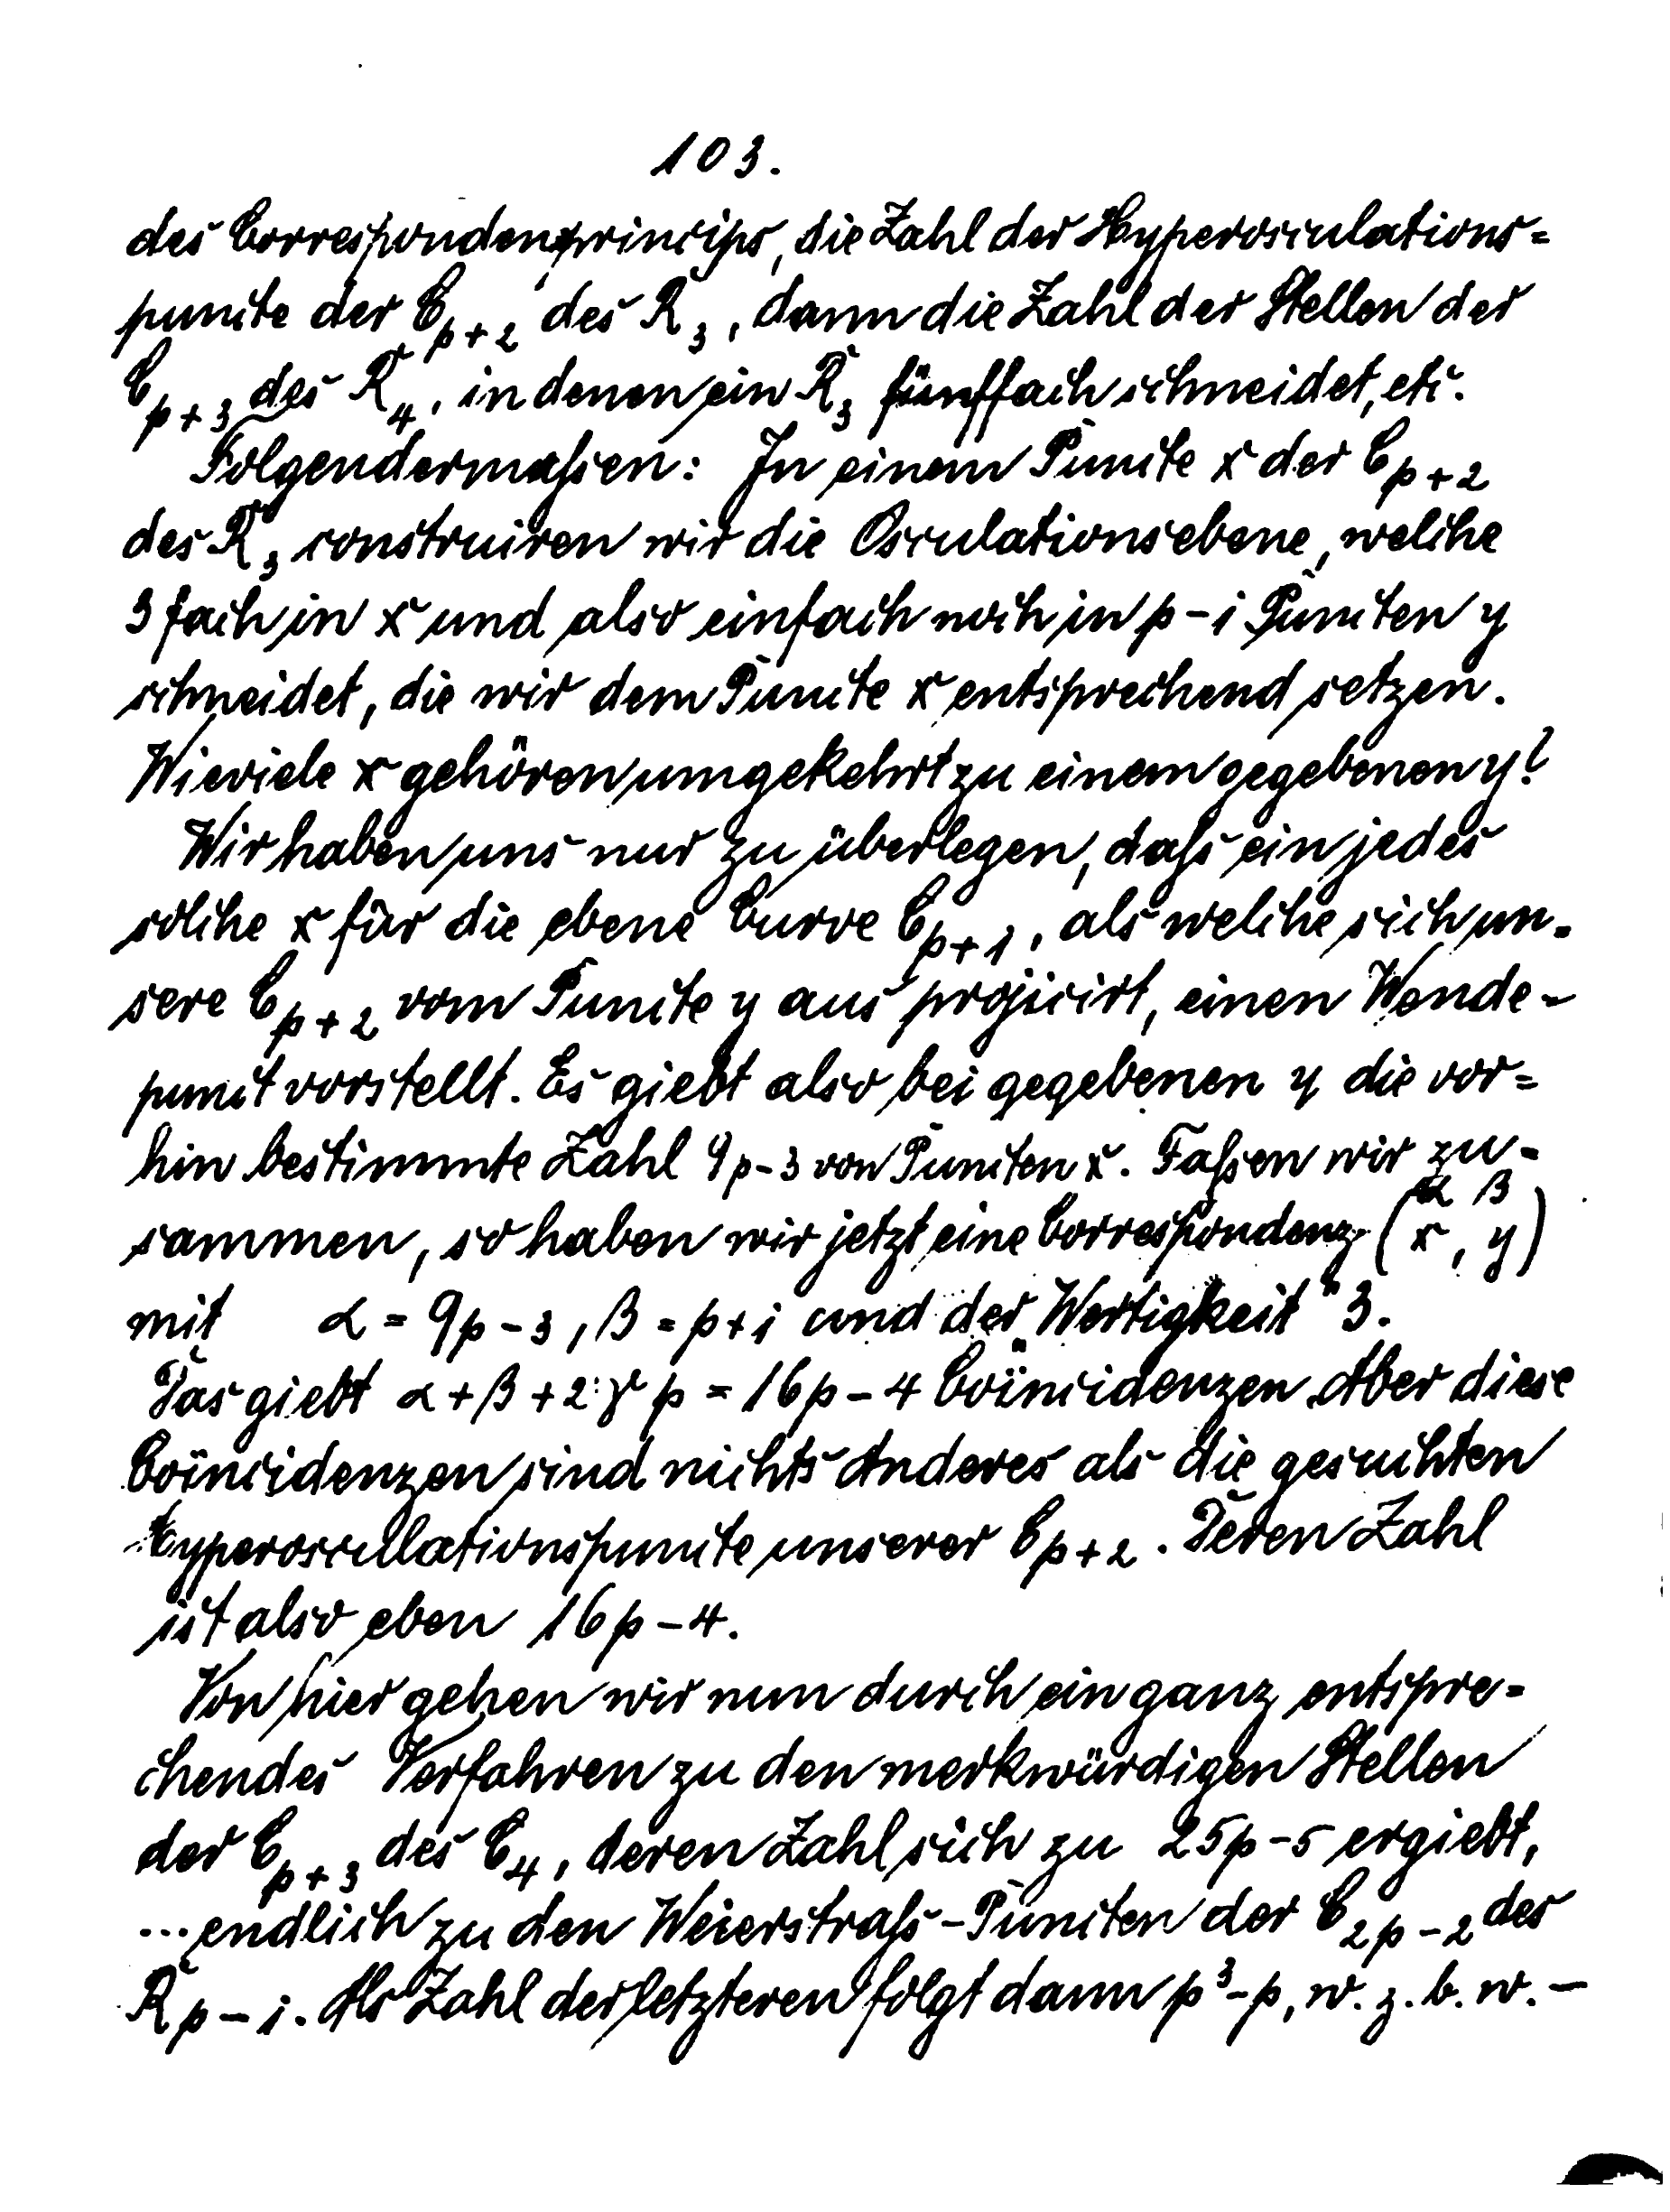 103.
des Correspondenzprincips, die Zahl der Hyperosculations=
puncte der C_{p+2} des R_3, dann die Zahl der Stellen der
C_{p+3} des R_4, in denen ein R_3 fünffach schneidet, etc.
Folgendermaßen: In einem Puncte x der C_{p+2}
des R_3 construiren wir die Osculationsebene, welche
3 fach in x und also einfach noch in p-1 Puncten y
schneidet, die wir dem Puncte x entsprechend setzen.
Wieviele x gehören umgekehrt zu einem gegebenen y?
Wir haben uns nur zu überlegen, daß ein jedes
solche x für die ebene Curve C_{p+1}, als welche sich un-
sere C_{p+2} vom Puncte y aus projicirt, einen Wende-
punct vorstellt. Es giebt also bei gegebenen y die vor=
hin bestimmte Zahl 9p-3 von Puncten x. Faßen wir zu-
sammen, so haben wir jetzt eine Correspondenz (x^α, y^β)
mit α = 9p-3, β = p+1 und der "Wertigkeit" 3.
Das giebt α+β+2γp = 16p-4 Coïncidenzen. Aber diese
Coïncidenzen sind nichts Anderes als die gesuchten
Hyperosculationspuncte unserer C_{p+2}. Deren Zahl
ist also eben 16p-4.
Von hier gehen wir nun durch ein ganz entspre=
chendes Verfahren zu den merkwürdigen Stellen
der C_{p+3} des C_4, deren Zahl sich zu 25p-5 ergiebt,
...endlich zu den Weierstraß-Puncten der C_{2p-2} des
R_{p-1}. Als Zahl der letzteren folgt dann p³-p, w. z. b. w. -